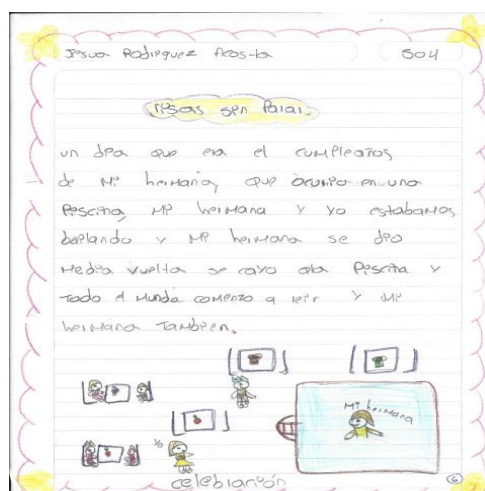 Jesua Rodriguez Acosta 504
risas sin Parar.
un dia que era el cumpleaños
de mi hermana, que ocurrio en una
Piscina, mi hermana y yo estabamos
bailando y mi hermana se dio
media vuelta se cayo ala Piscina y
todo el mundo comenzo a reir y mi
hermana Tambien.
Mi hermana
yo
celebración
6